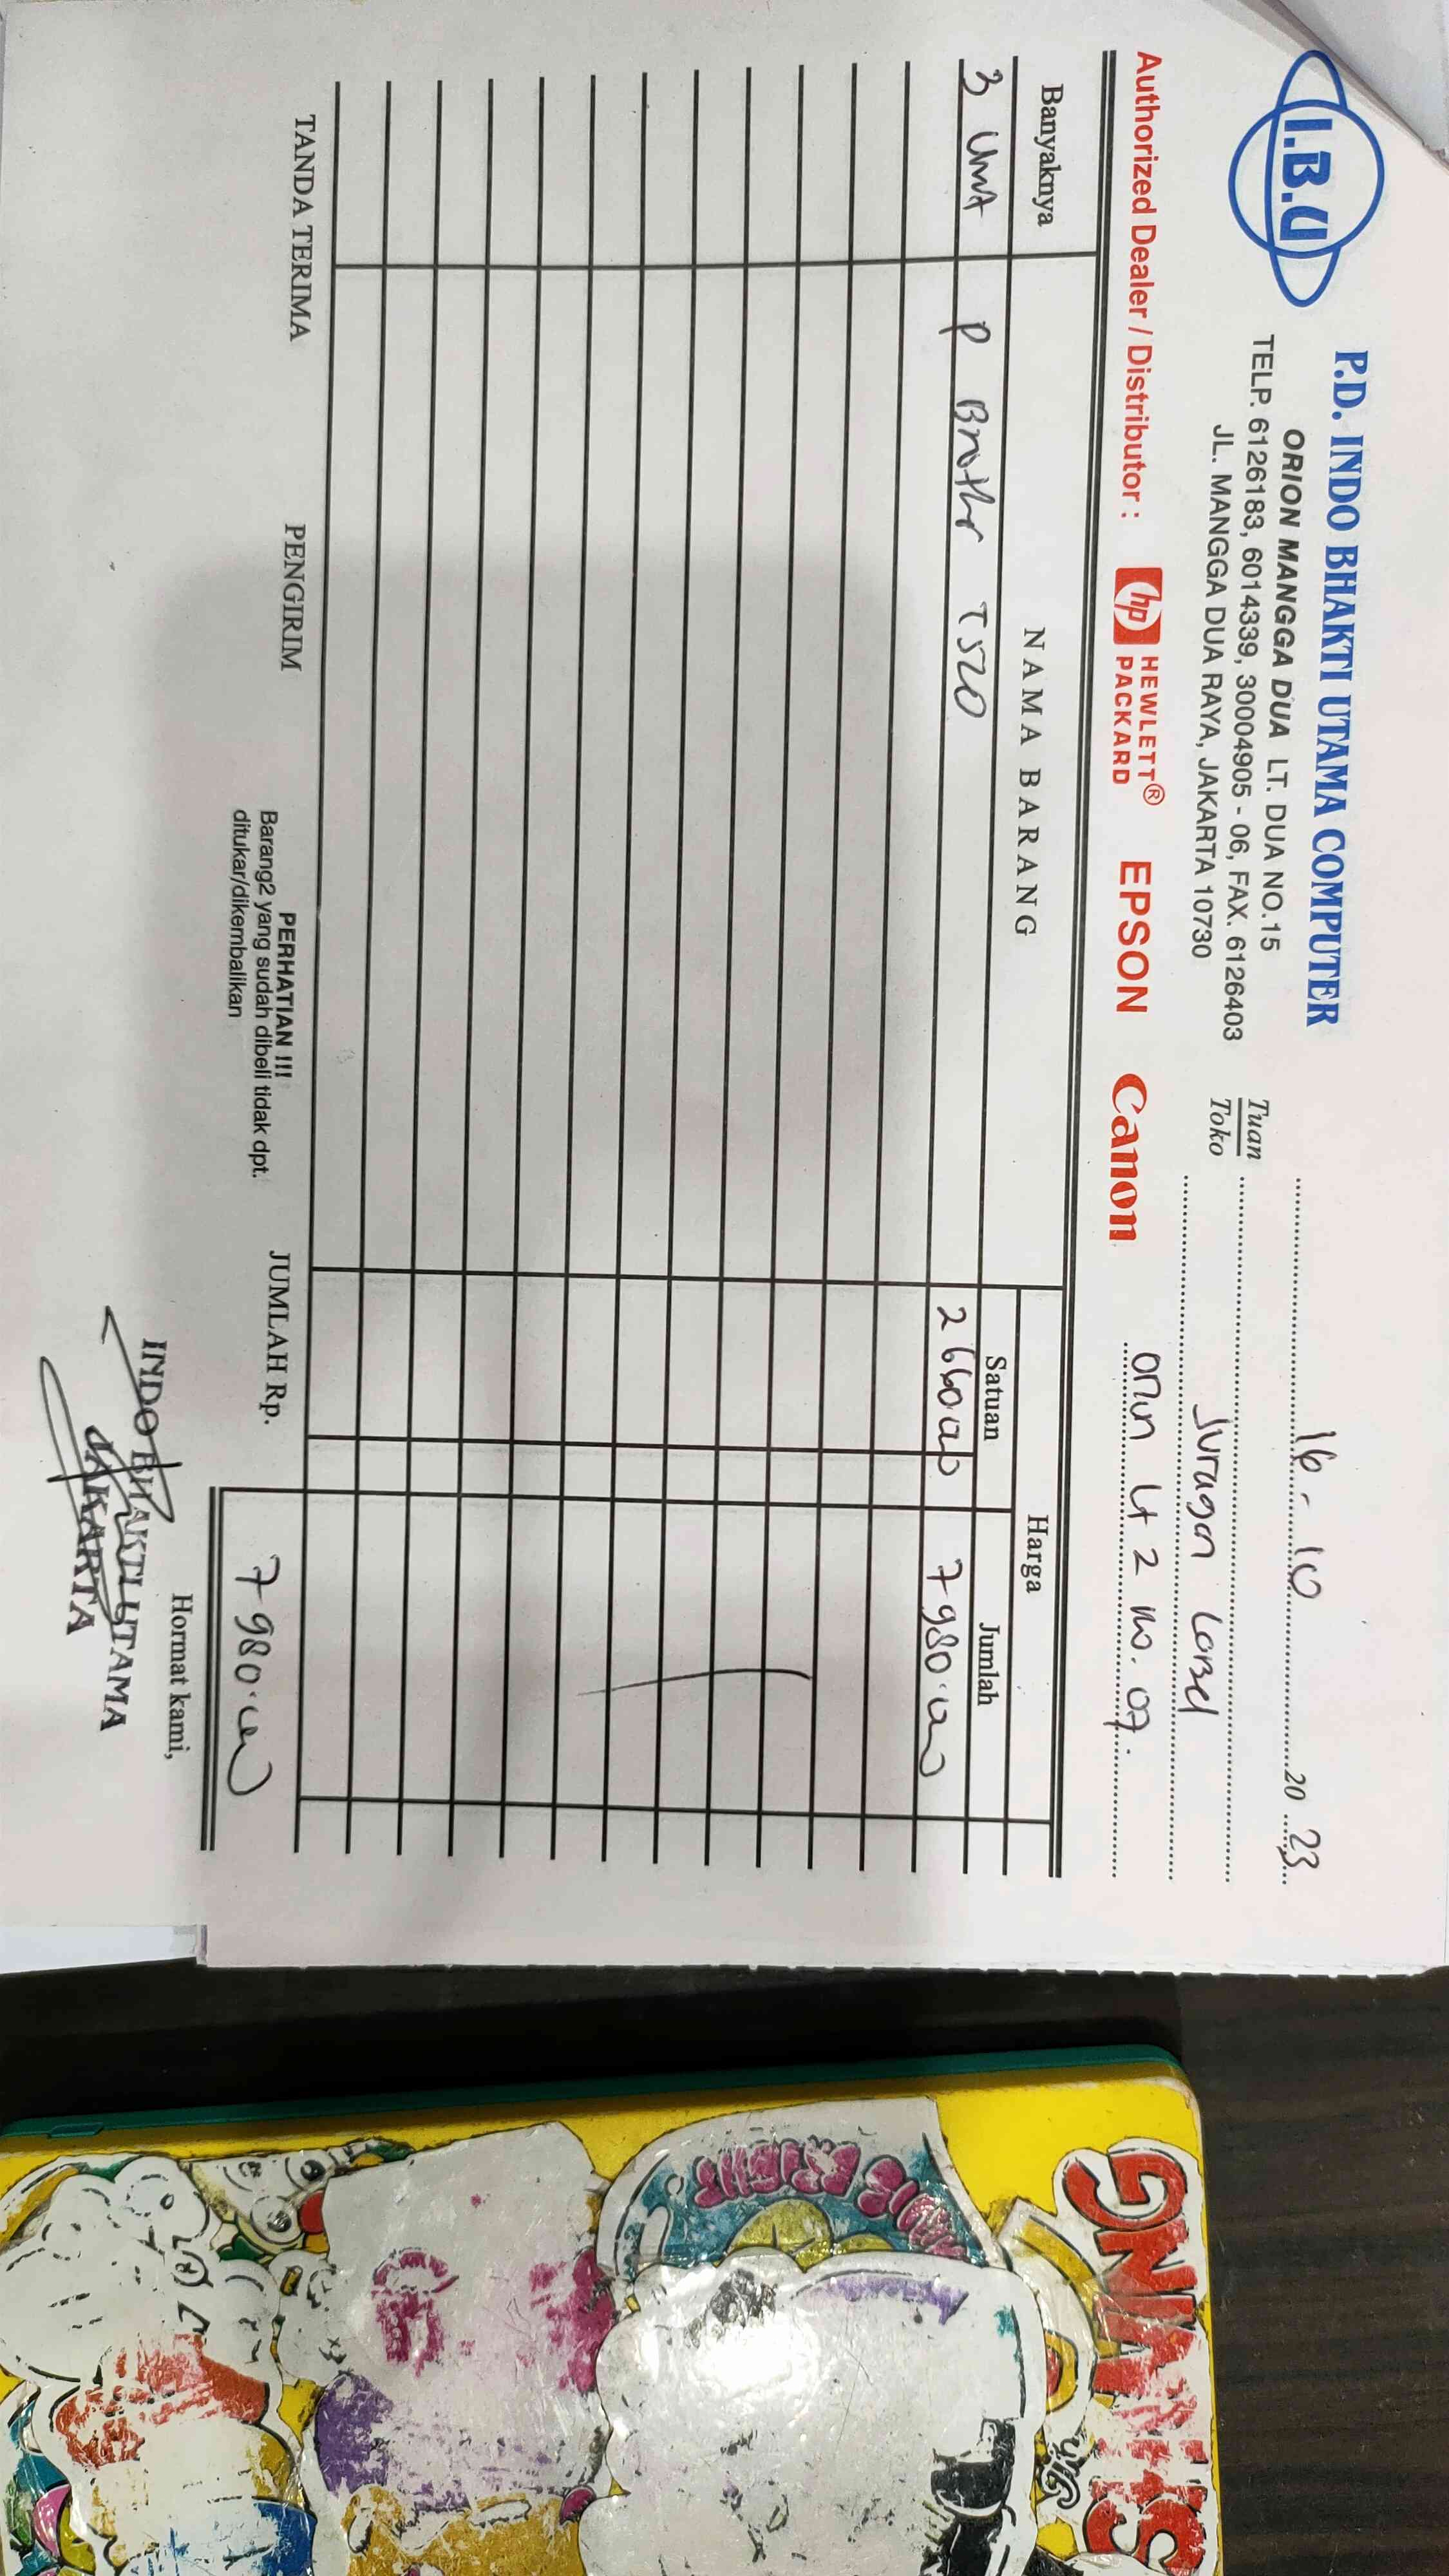 I.B.U
P.D. INDO BHAKTI UTAMA COMPUTER
ORION MANGGA DUA LT. DUA NO.15
TELP. 6126183, 6014339, 30004905 - 06, FAX. 6126403
JL. MANGGA DUA RAYA, JAKARTA 10730
16 - 10 20 23
Tuan
Toko
Juragan Label
Orion Lt 2 no. 07.
Authorized Dealer / Distributor : hp HEWLETT® PACKARD EPSON Canon
Banyaknya NAMA BARANG Harga
Satuan Jumlah
3 Unit P Brother T520 2660000 7980.000
TANDA TERIMA PENGIRIM JUMLAH Rp. 7980.000
PERHATIAN !!!
Barang2 yang sudah dibeli tidak dpt.
ditukar/dikembalikan
Hormat kami,
INDO BHAKTI UTAMA
JAKARTA